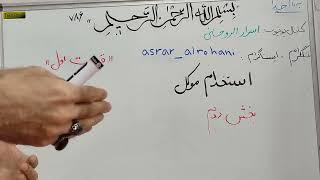 ۷۸۶ بسم الله الرحمن الرحیم
کانال یوتیوب: اسرار الروحانی
تلگرام. اینستاگرام: asrar_alrohani
استخدام موکل
بخش دوم